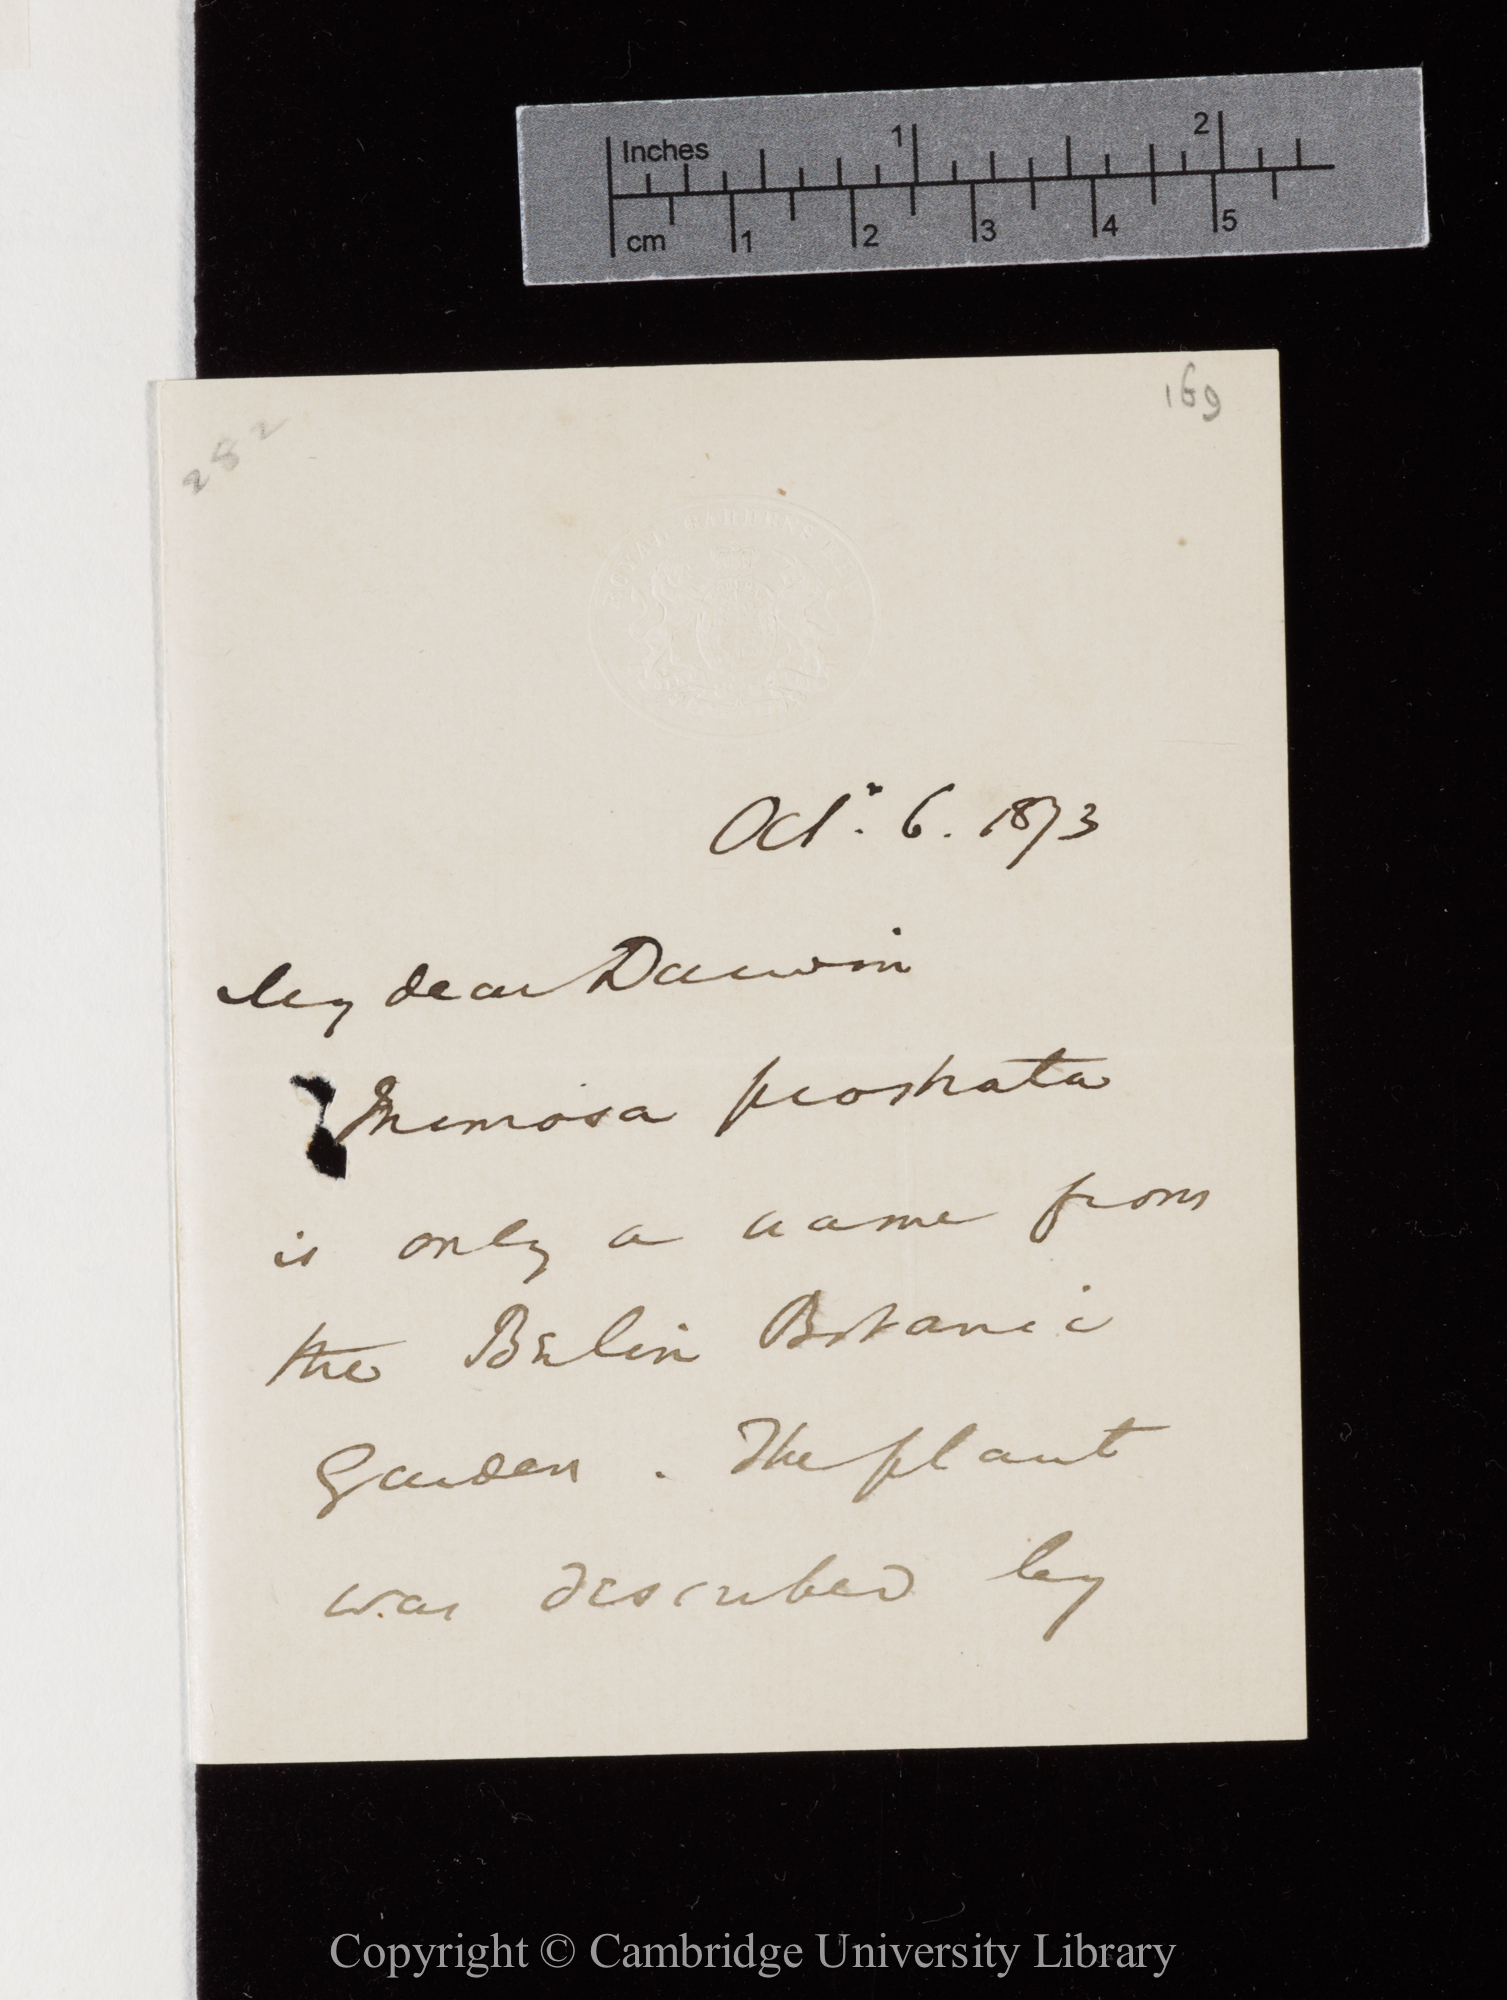 Inches 1 2
cm 1 2 3 4 5
169
282
ROYAL GARDENS KEW
Octr. 6. 1873
My dear Darwin
Mimosa prostrata
is only a name from
the Berlin Botanic
Garden. The plant
was described by
Copyright © Cambridge University Library